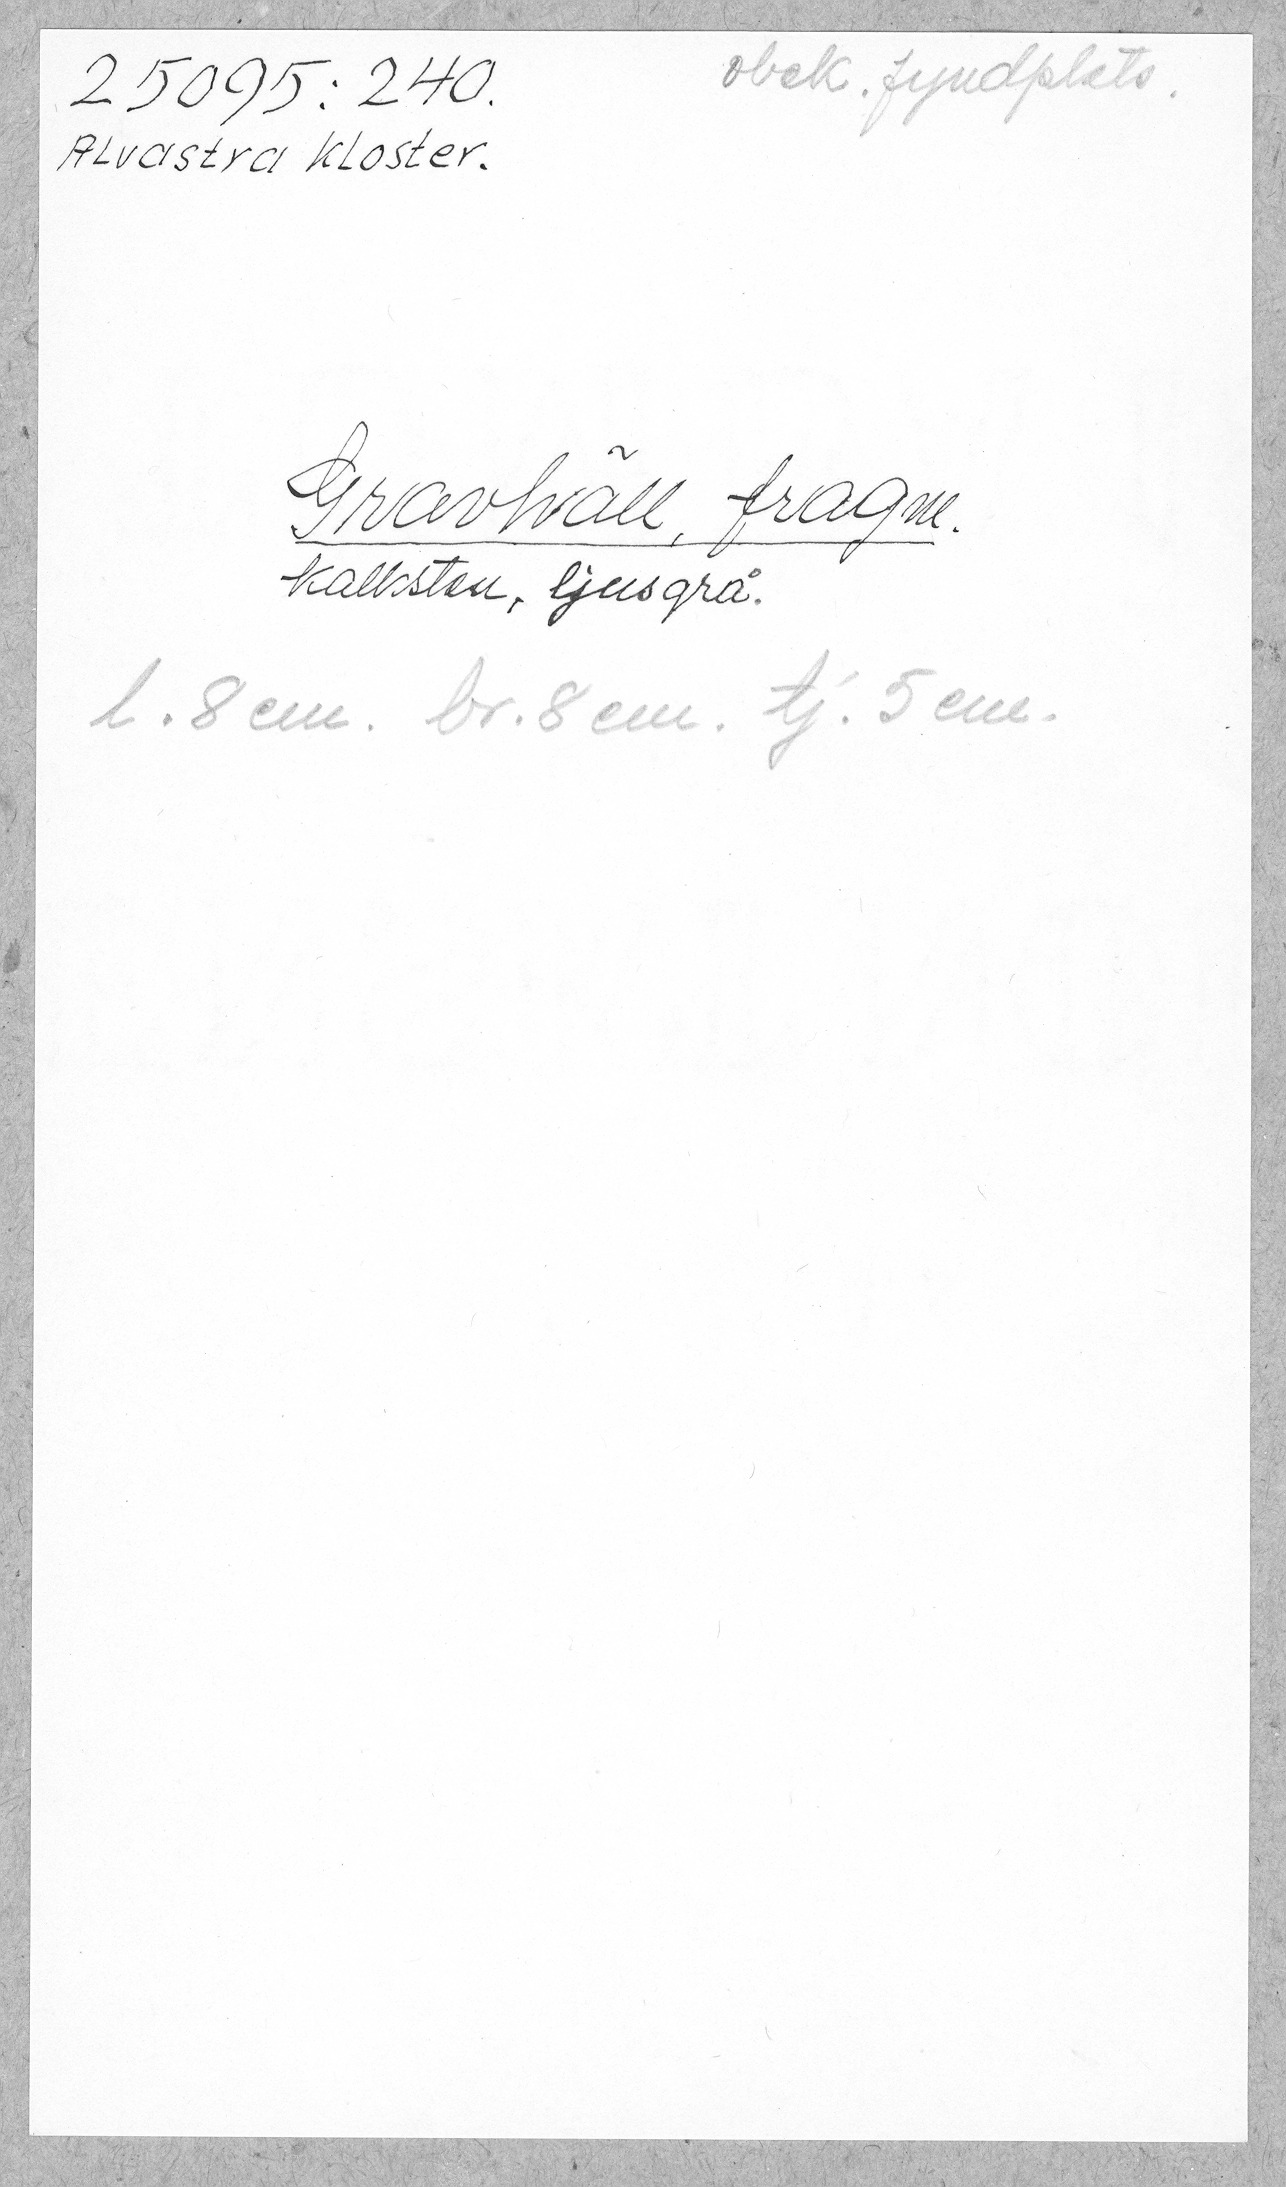 25095:240.
obek. fyndplats.
Alvastra kloster.
Gravhäll, fragm.
kalksten, ljusgrå.
l. 8 cm. br. 8 cm. tj. 5 cm.